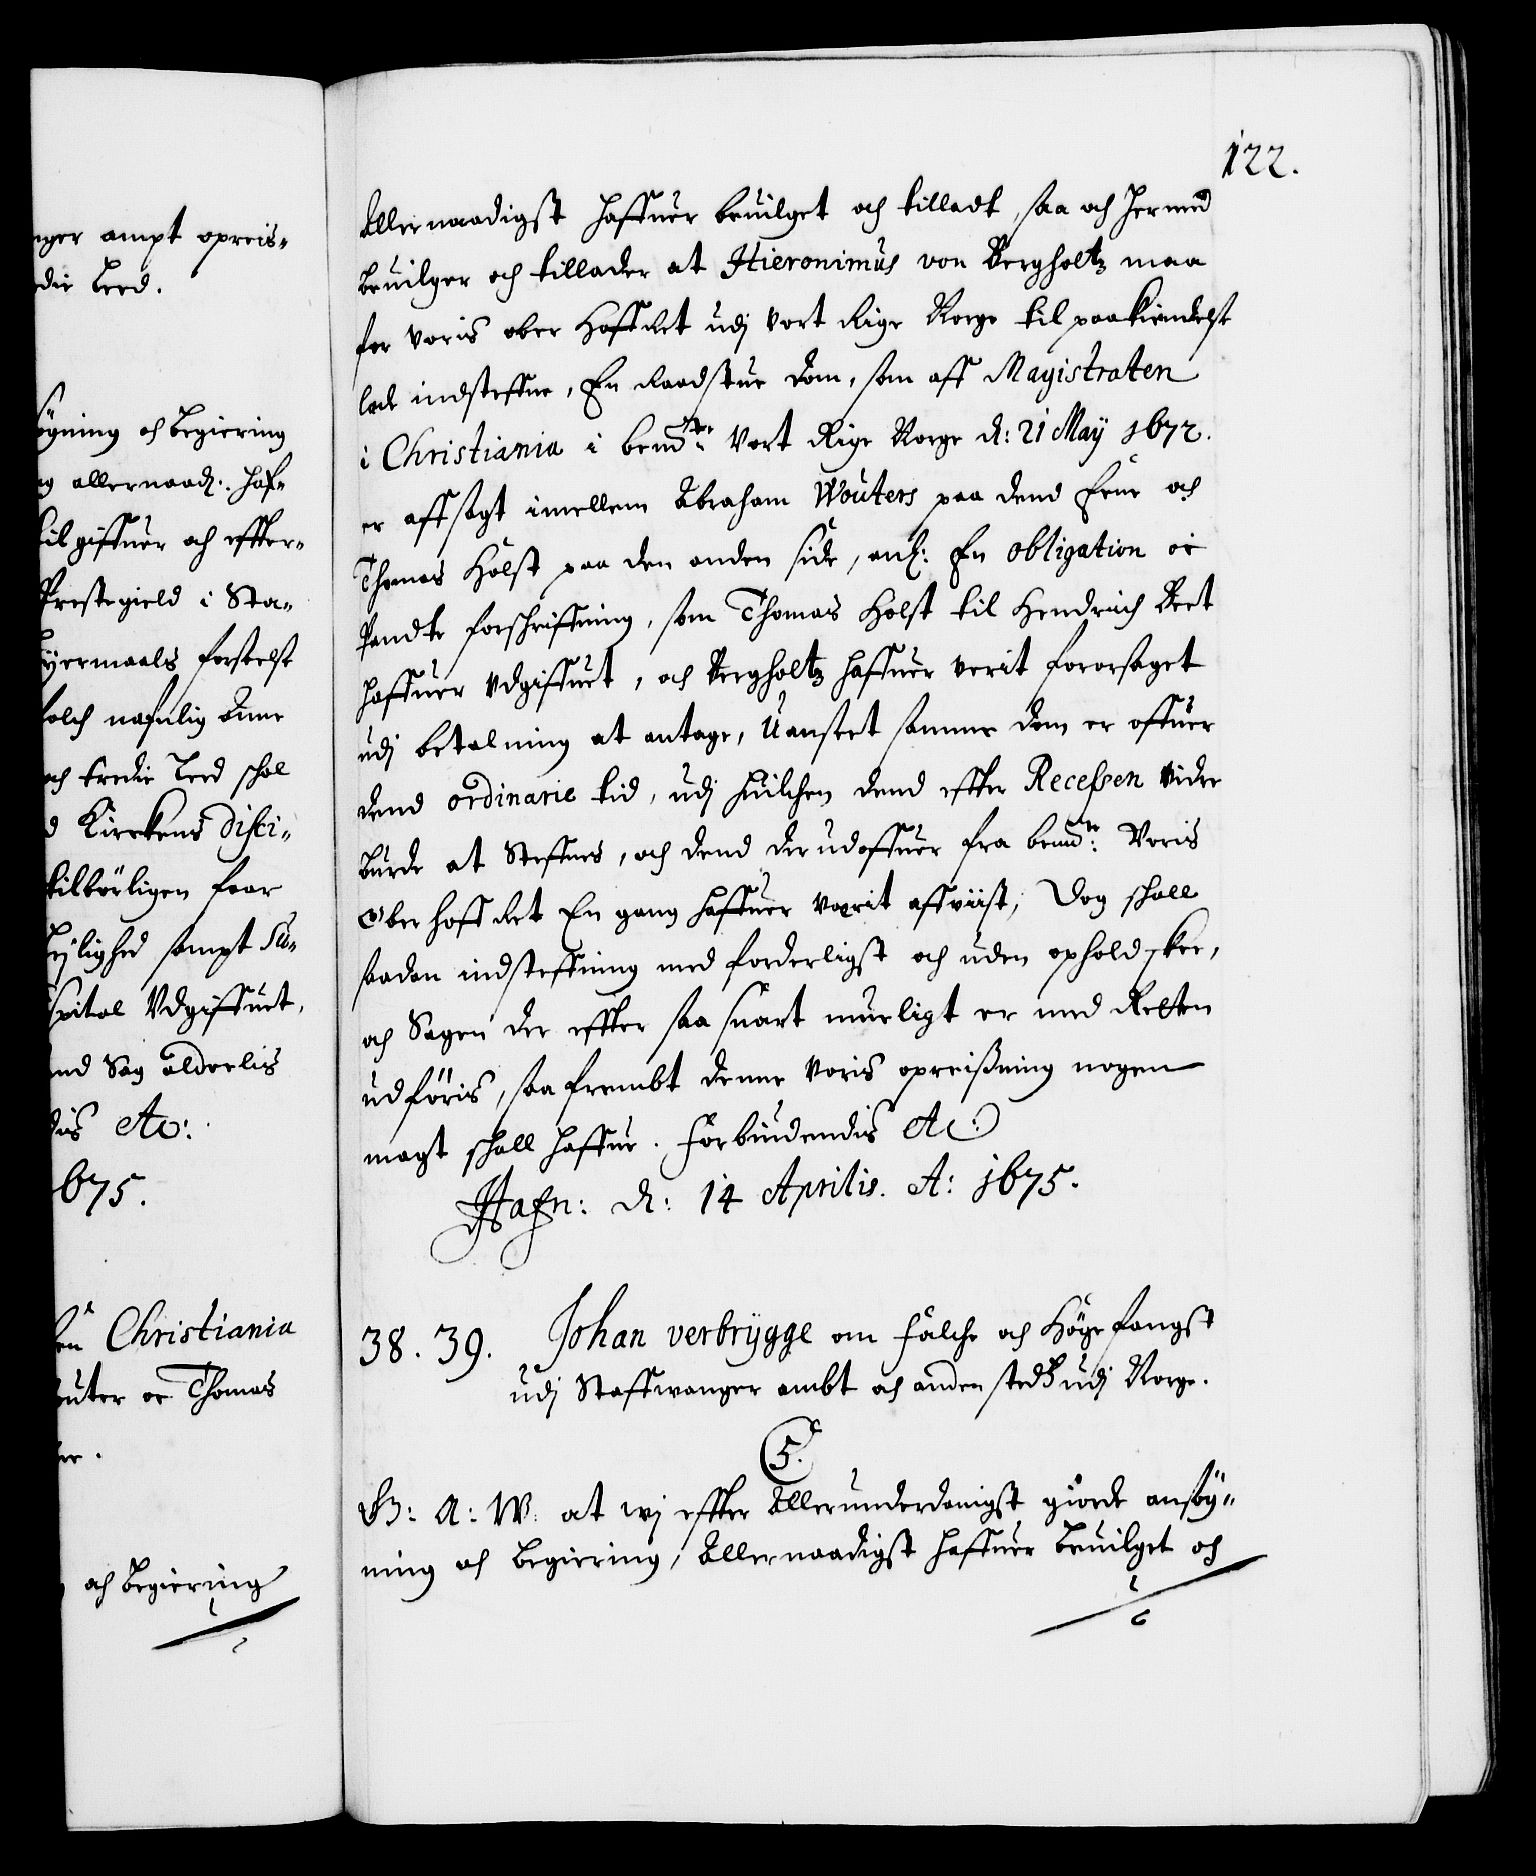 nger ampt opreis-
edie Leed.
øgning och begiering
ng allernaad: haf-
til giffuer och effter-
Prestegield i Sta-
Lyermaals forseelse
folch nafnlig Anne
och tredie Leed schal
d Kirckens disci-
tilbørligen staar
Lejlighed sampt Su-
spital Udgiffuet,
end Sag alderlis
dis &c:
675.
en Christiania
outer oc Thomas
er.
och begiering
122.
Allernaadigst haffuer beuilget och tilladt, saa och hermed
beuilger och tillader at Hieronimus von Bergholtz maa
for voris ober Hoffret udj vort Rige Norge til paakiendelse
lade indsteffne, En Raadstue dom, som aff Magistraten
i Christiania i bemte: Vort Rige Norge d: 21 May 1672.
er affsagt imellem Abraham Wouters paa dend Eene och
Thomas Holst paa den anden side, anl: En obligation oc
Pandte forschriffning, som Thomas Holst til Hendrich Beet
haffuer udgiffuet, och Bergholtz haffuer verit forarsaget
udj betalning at antage, Uanseet samme dom er offuer
dend ordinarie tid, udj huilchen dend effter Recessen vider
burde at Steffnes, och dend der udoffuer fra bemte: Voris
Ober hoffret En gang haffuer værit affviist, Dog schall
saadan indsteffning med forderligst och uden ophold skee,
och Sagen der effter saa snart mueligt er med Retten
udføris, saafrembt denne Voris opreisning nogen
magt schall haffue. Forbiudendis &c:
Hafn: d: 14 Aprilis. A: 1675.
38. 39. Johan verbrygge om Falche och Høge fangst
udj Staffwanger ambt och anden steds udj Norge.
5.
G: A: W: at wj effter Allerunderdanigst giorde ansøg-
ning och begiering, Allernaadigst haffuer beuilget och